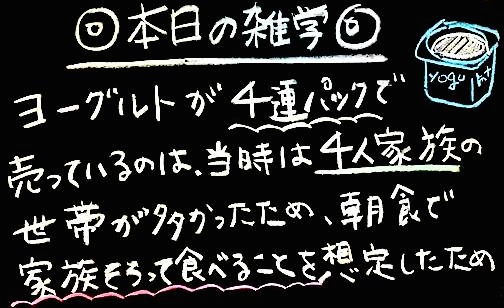 ◎本日の雑学◎
yogurt
ヨーグルトが4連パックで
売っているのは、当時は4人家族の
世帯が多かったため、朝食で
家族そろって食べることを想定したため